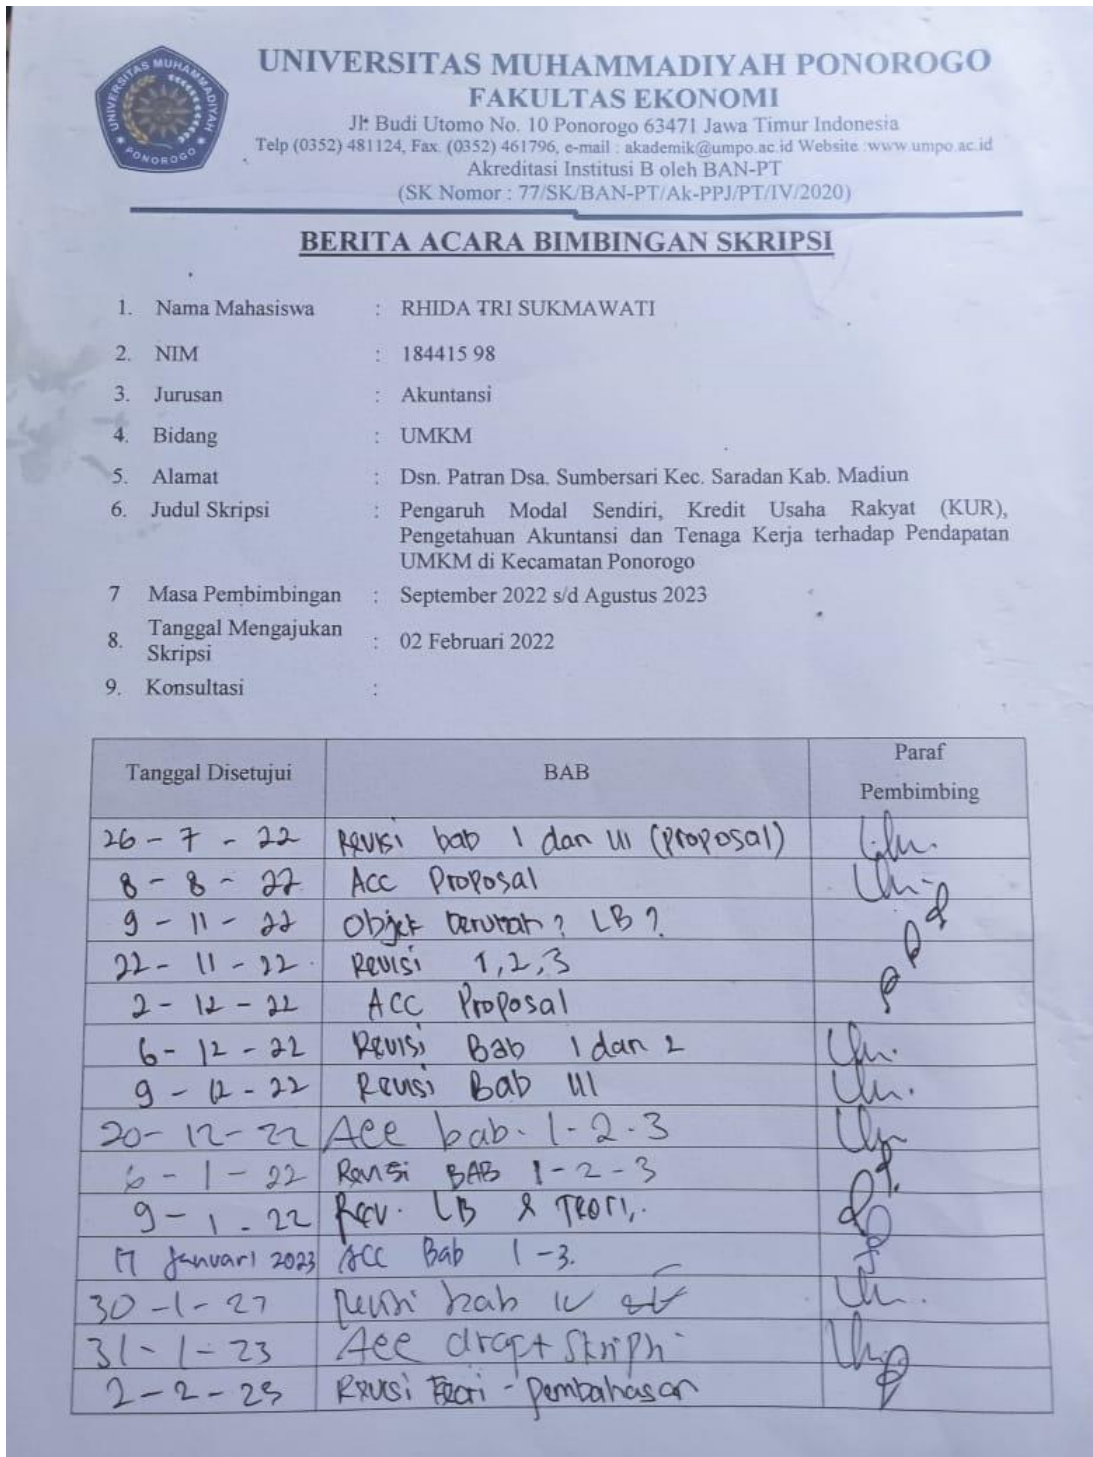 UNIVERSITAS MUHAMMADIYAH PONOROGO
FAKULTAS EKONOMI
Jl. Budi Utomo No. 10 Ponorogo 63471 Jawa Timur Indonesia
Telp (0352) 481124, Fax. (0352) 461796, e-mail : akademik@umpo.ac.id Website :www.umpo.ac.id
Akreditasi Institusi B oleh BAN-PT
(SK Nomor : 77/SK/BAN-PT/Ak-PPJ/PT/IV/2020)
UNIVERSITAS MUHAMMADIYAH PONOROGO
BERITA ACARA BIMBINGAN SKRIPSI
1. Nama Mahasiswa : RHIDA TRI SUKMAWATI
2. NIM : 184415 98
3. Jurusan : Akuntansi
4. Bidang : UMKM
5. Alamat : Dsn. Patran Dsa. Sumbersari Kec. Saradan Kab. Madiun
6. Judul Skripsi : Pengaruh Modal Sendiri, Kredit Usaha Rakyat (KUR),
Pengetahuan Akuntansi dan Tenaga Kerja terhadap Pendapatan
UMKM di Kecamatan Ponorogo
7 Masa Pembimbingan : September 2022 s/d Agustus 2023
8. Tanggal Mengajukan Skripsi : 02 Februari 2022
9. Konsultasi :
Tanggal Disetujui BAB Paraf Pembimbing
26 - 7 - 22 Revisi bab I dan III (Proposal)
8 - 8 - 22 Acc Proposal
9 - 11 - 22 Objek LB ?
22 - 11 - 22 Revisi 1,2,3
2 - 12 - 22 ACC Proposal
6 - 12 - 22 Revisi Bab 1 dan 2
9 - 12 - 22 Revisi Bab III
20 - 12 - 22 Acc bab. 1 - 2 - 3
6 - 1 - 22 Revisi BAB 1 - 2 - 3
9 - 1 - 22 Rev. LB & Teori,.
17 Januari 2023 ACC Bab 1 - 3.
30 - 1 - 23 Revisi bab IV
31 - 1 - 23 Acc draft Skripsi
2 - 2 - 23 Revisi Teori - Pembahasan